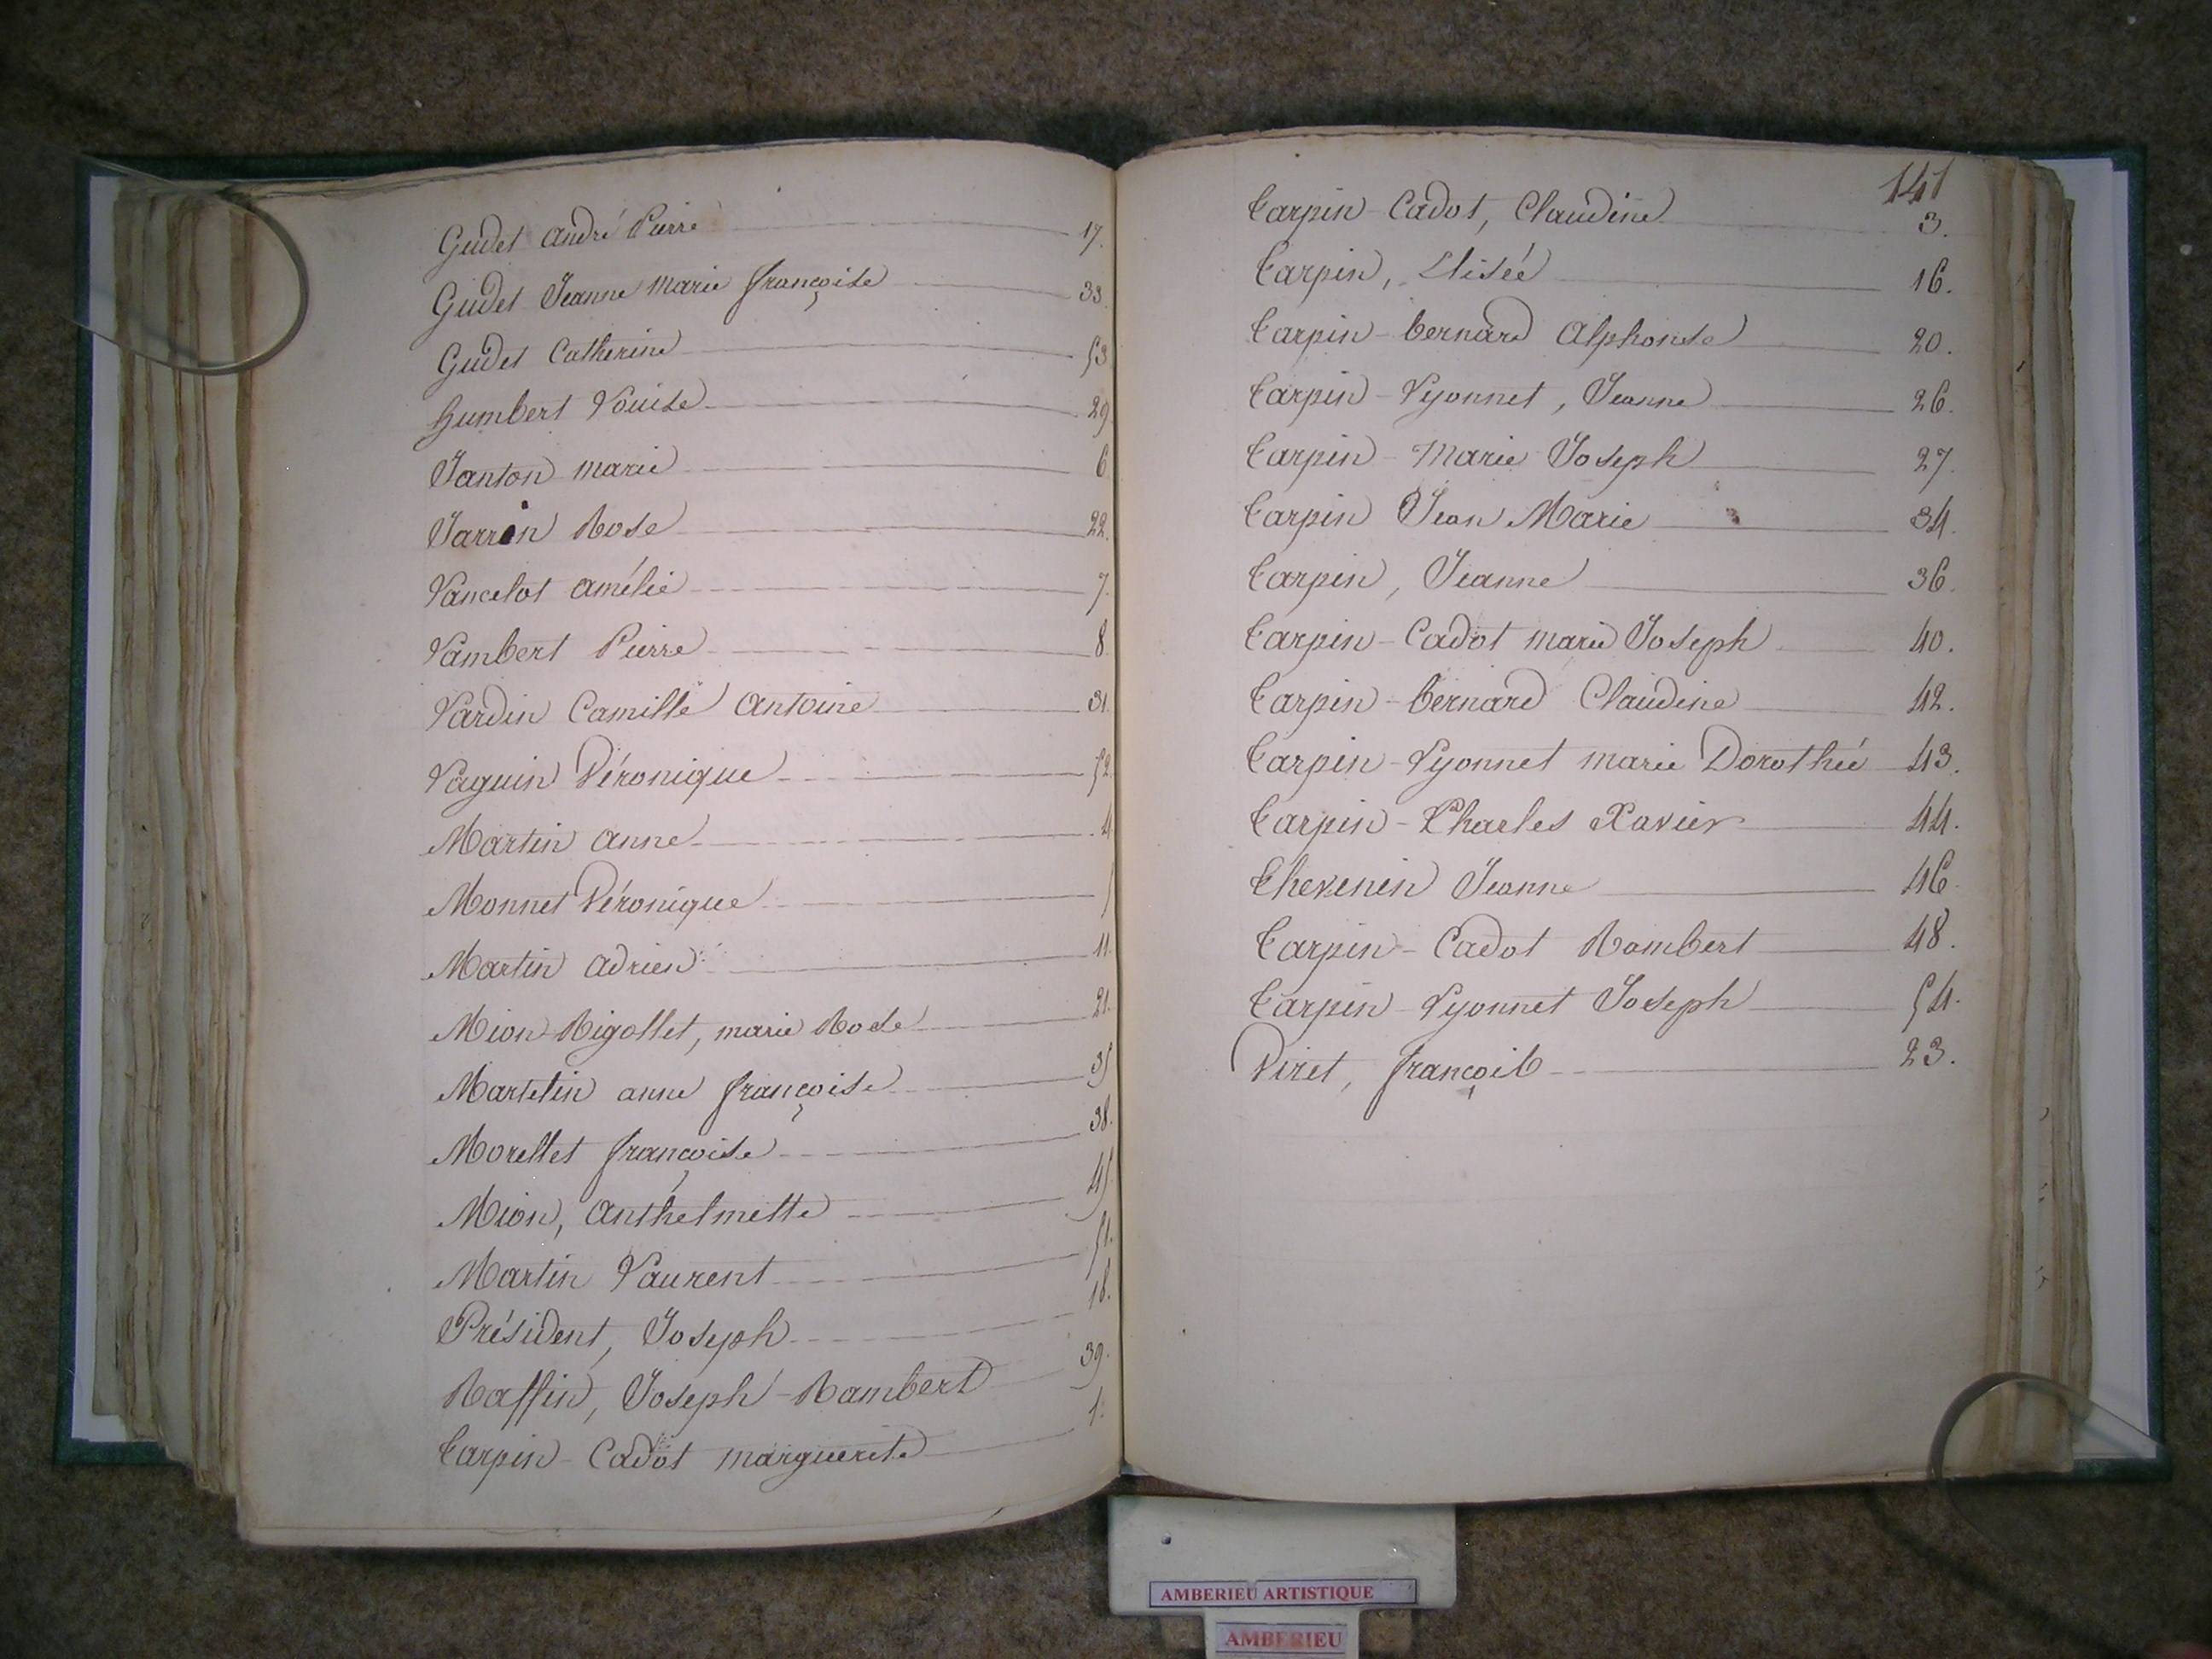 Gudet André Pierre 17.
Gudet Jeanne Marie françoise 33.
Gudet Catherine 53
humbert Louise 29
Janton marie 6
Jarrin Rose 22.
Lancelot amélie 7.
Lambert Pierre 8
Lardin Camille Antoine 31.
Laguin Véronique 52.
Martin anne 4
Monnet Véronique 5
Martin adrien 11.
Mion-Rigollet, marie Rose 21.
Martelin anne françoise 35
Morellet françoise 38.
Mion, anthelmette 45
Martin Laurent 51.
Président, Joseph 18.
Raffin, Joseph-Rambert 39.
Tarpin-Cadot marguerite 1.
141
Tarpin-Cadot, Claudine 3.
Tarpin, Elisée 16.
Tarpin-bernard Alphonse 20.
Tarpin-Lyonnet, Jeanne 26.
Tarpin-Marie Joseph 27.
Tarpin Jean Marie 34.
Tarpin, Jeanne 36.
Tarpin-Cadot marie Joseph 40.
Tarpin-bernard Claudine 42.
Tarpin-Lyonnet marie Dorothée 43.
Tarpin-Charles Xavier 44.
Thevenin Jeanne 46.
Tarpin-Cadot Rambert 48.
Tarpin-Lyonnet Joseph 54.
Viret, françois 23.
AMBERIEU ARTISTIQUE
AMBERIEU